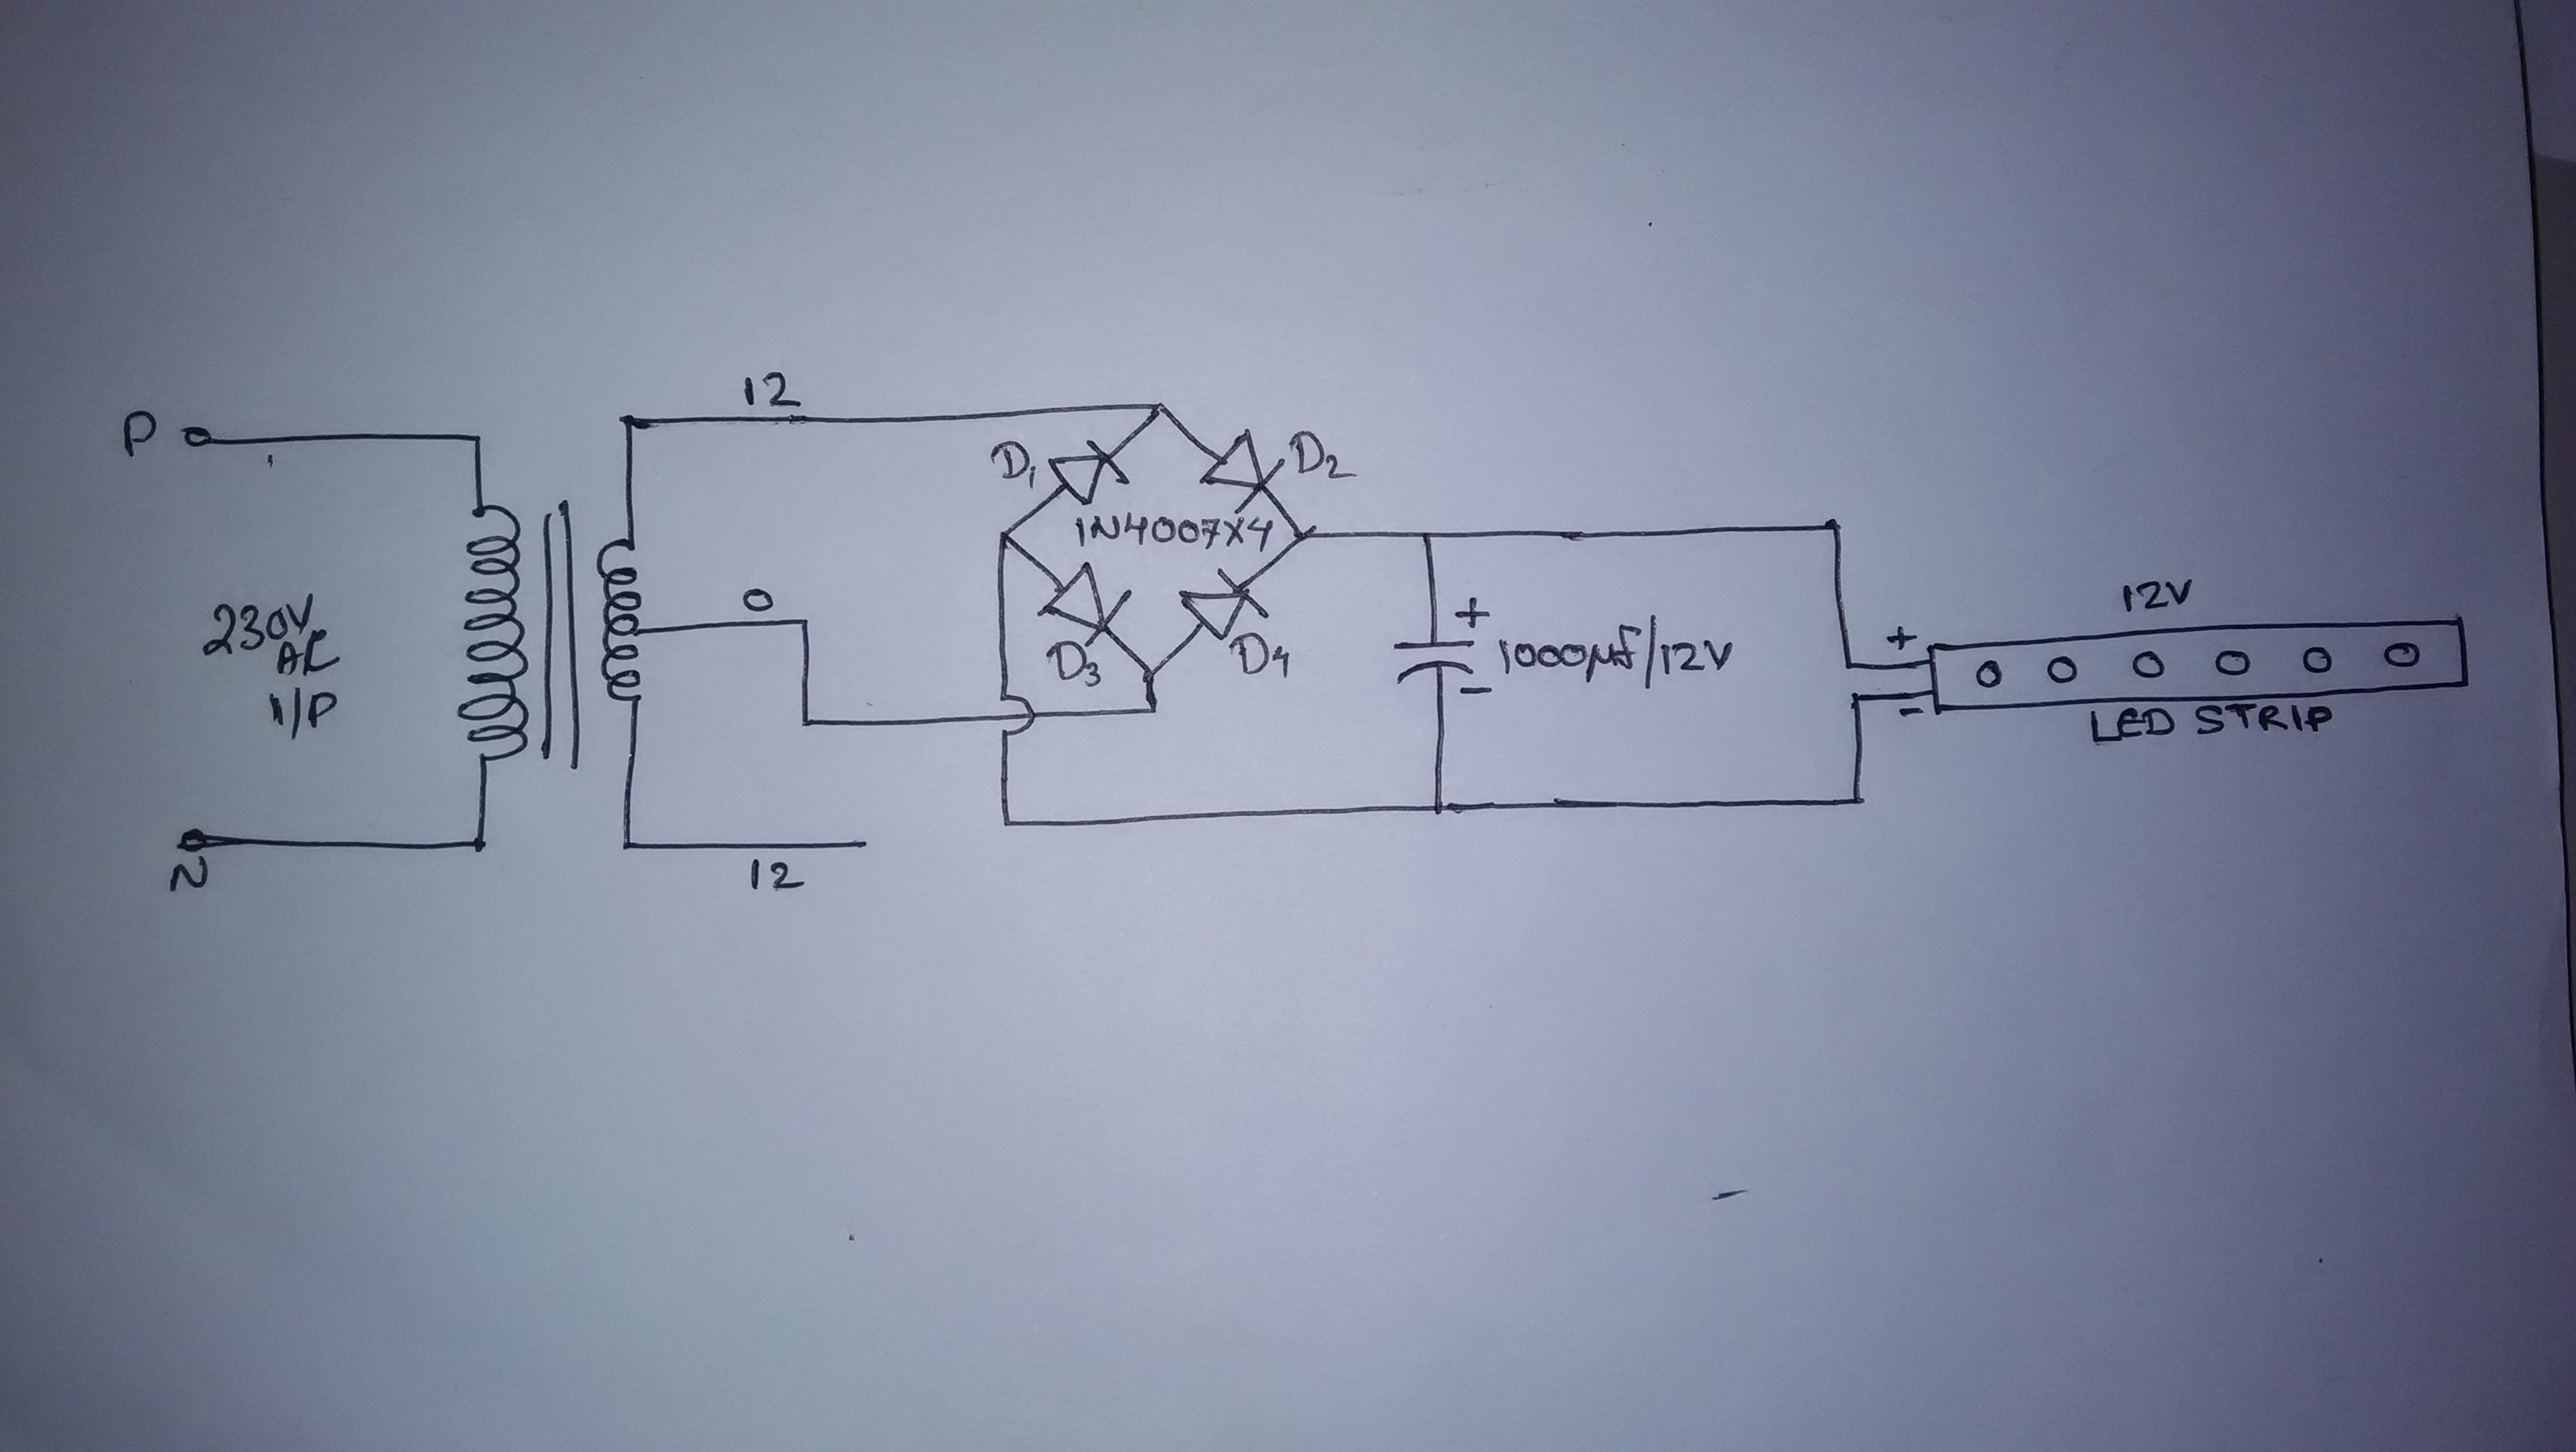 P
230V
AC
I/P
N
12
0
12
D1
D2
1N4007X4
D3
D4
+
1000µf/12V
-
12V
+
-
LED STRIP